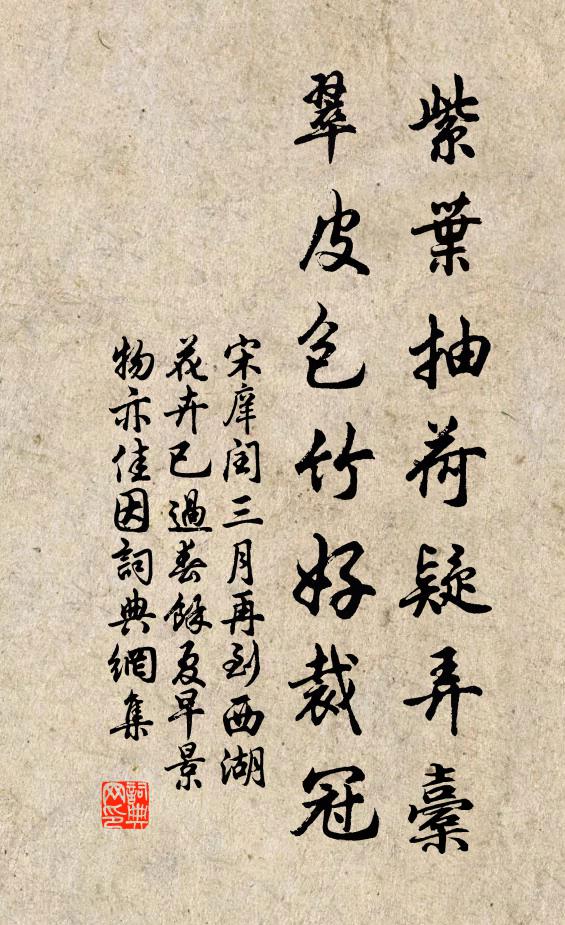 紫葉抽荷疑弄橐
翠皮包竹好裁冠
宋庠閏三月再到西湖
花卉已過春餘夏早景
物亦佳因詞典網集
詞典网印